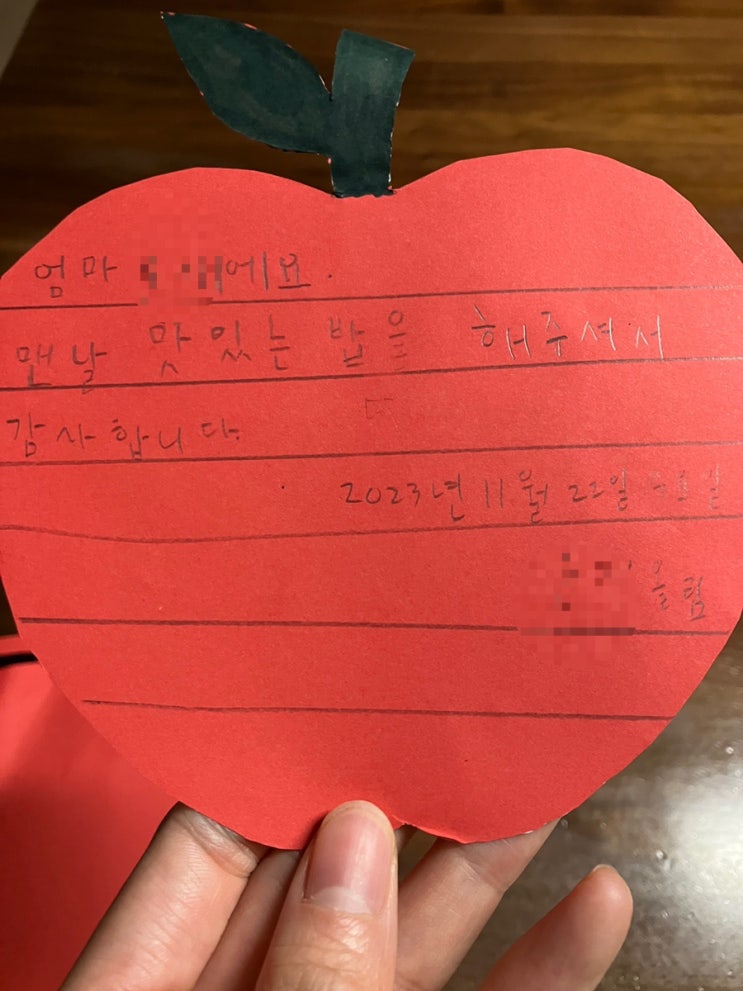 엄마 에요.
맨날 맛있는 밥을 해주셔서
감사합니다.
2023년 11월 22일 수요일
올림